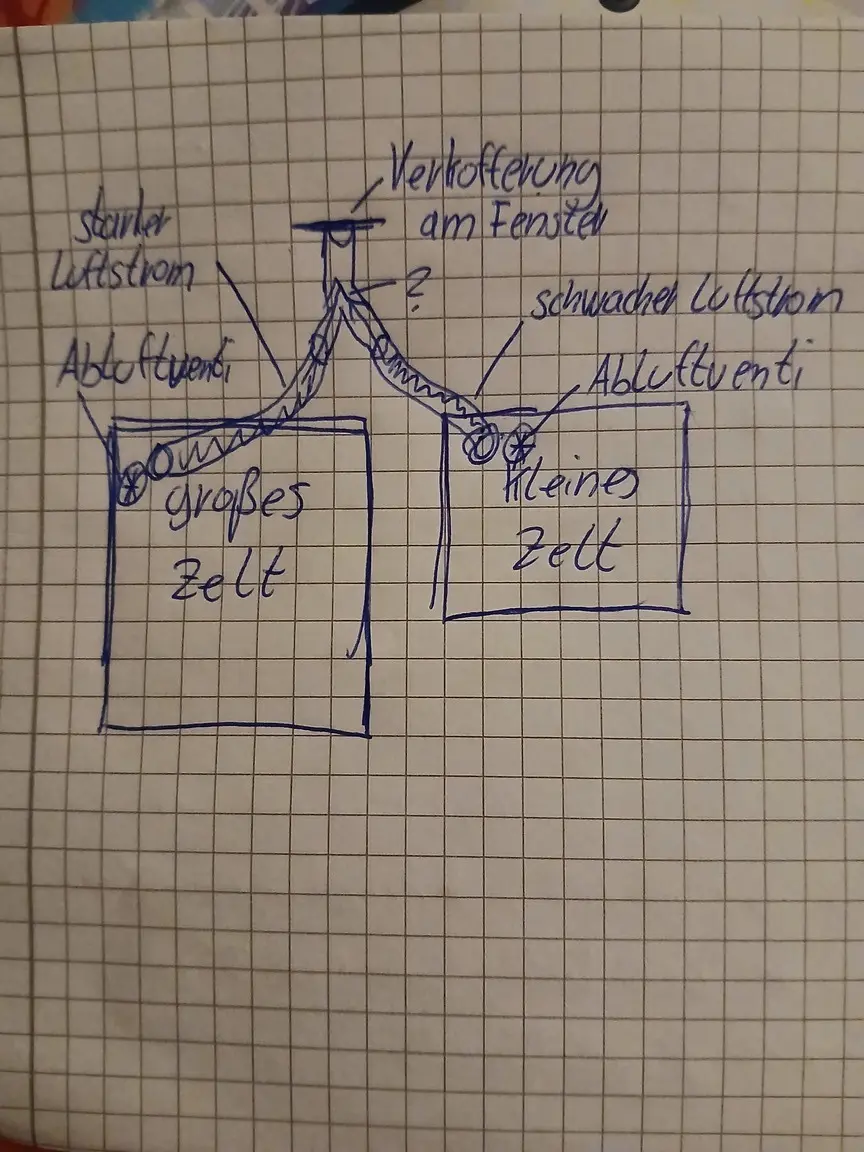 Verkofferung
am Fenster
starker
Luftstrom
?
schwacher Luftstrom
Abluftventi
Abluftventi
großes
Zelt
kleines
Zelt